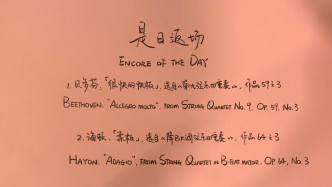 是日返场
ENCORE OF THE DAY
1. 贝多芬:「很快的快板」,选自《第九弦乐四重奏》,作品59之3
BEETHOVEN: "ALLEGRO MOLTO", FROM STRING QUARTET NO. 9, OP. 59, NO.3
2. 海顿:「柔板」,选自《降B大调弦乐四重奏》,作品64之3
HAYDN: "ADAGIO", FROM STRING QUARTET IN B-FLAT MAJOR, OP. 64, NO.3